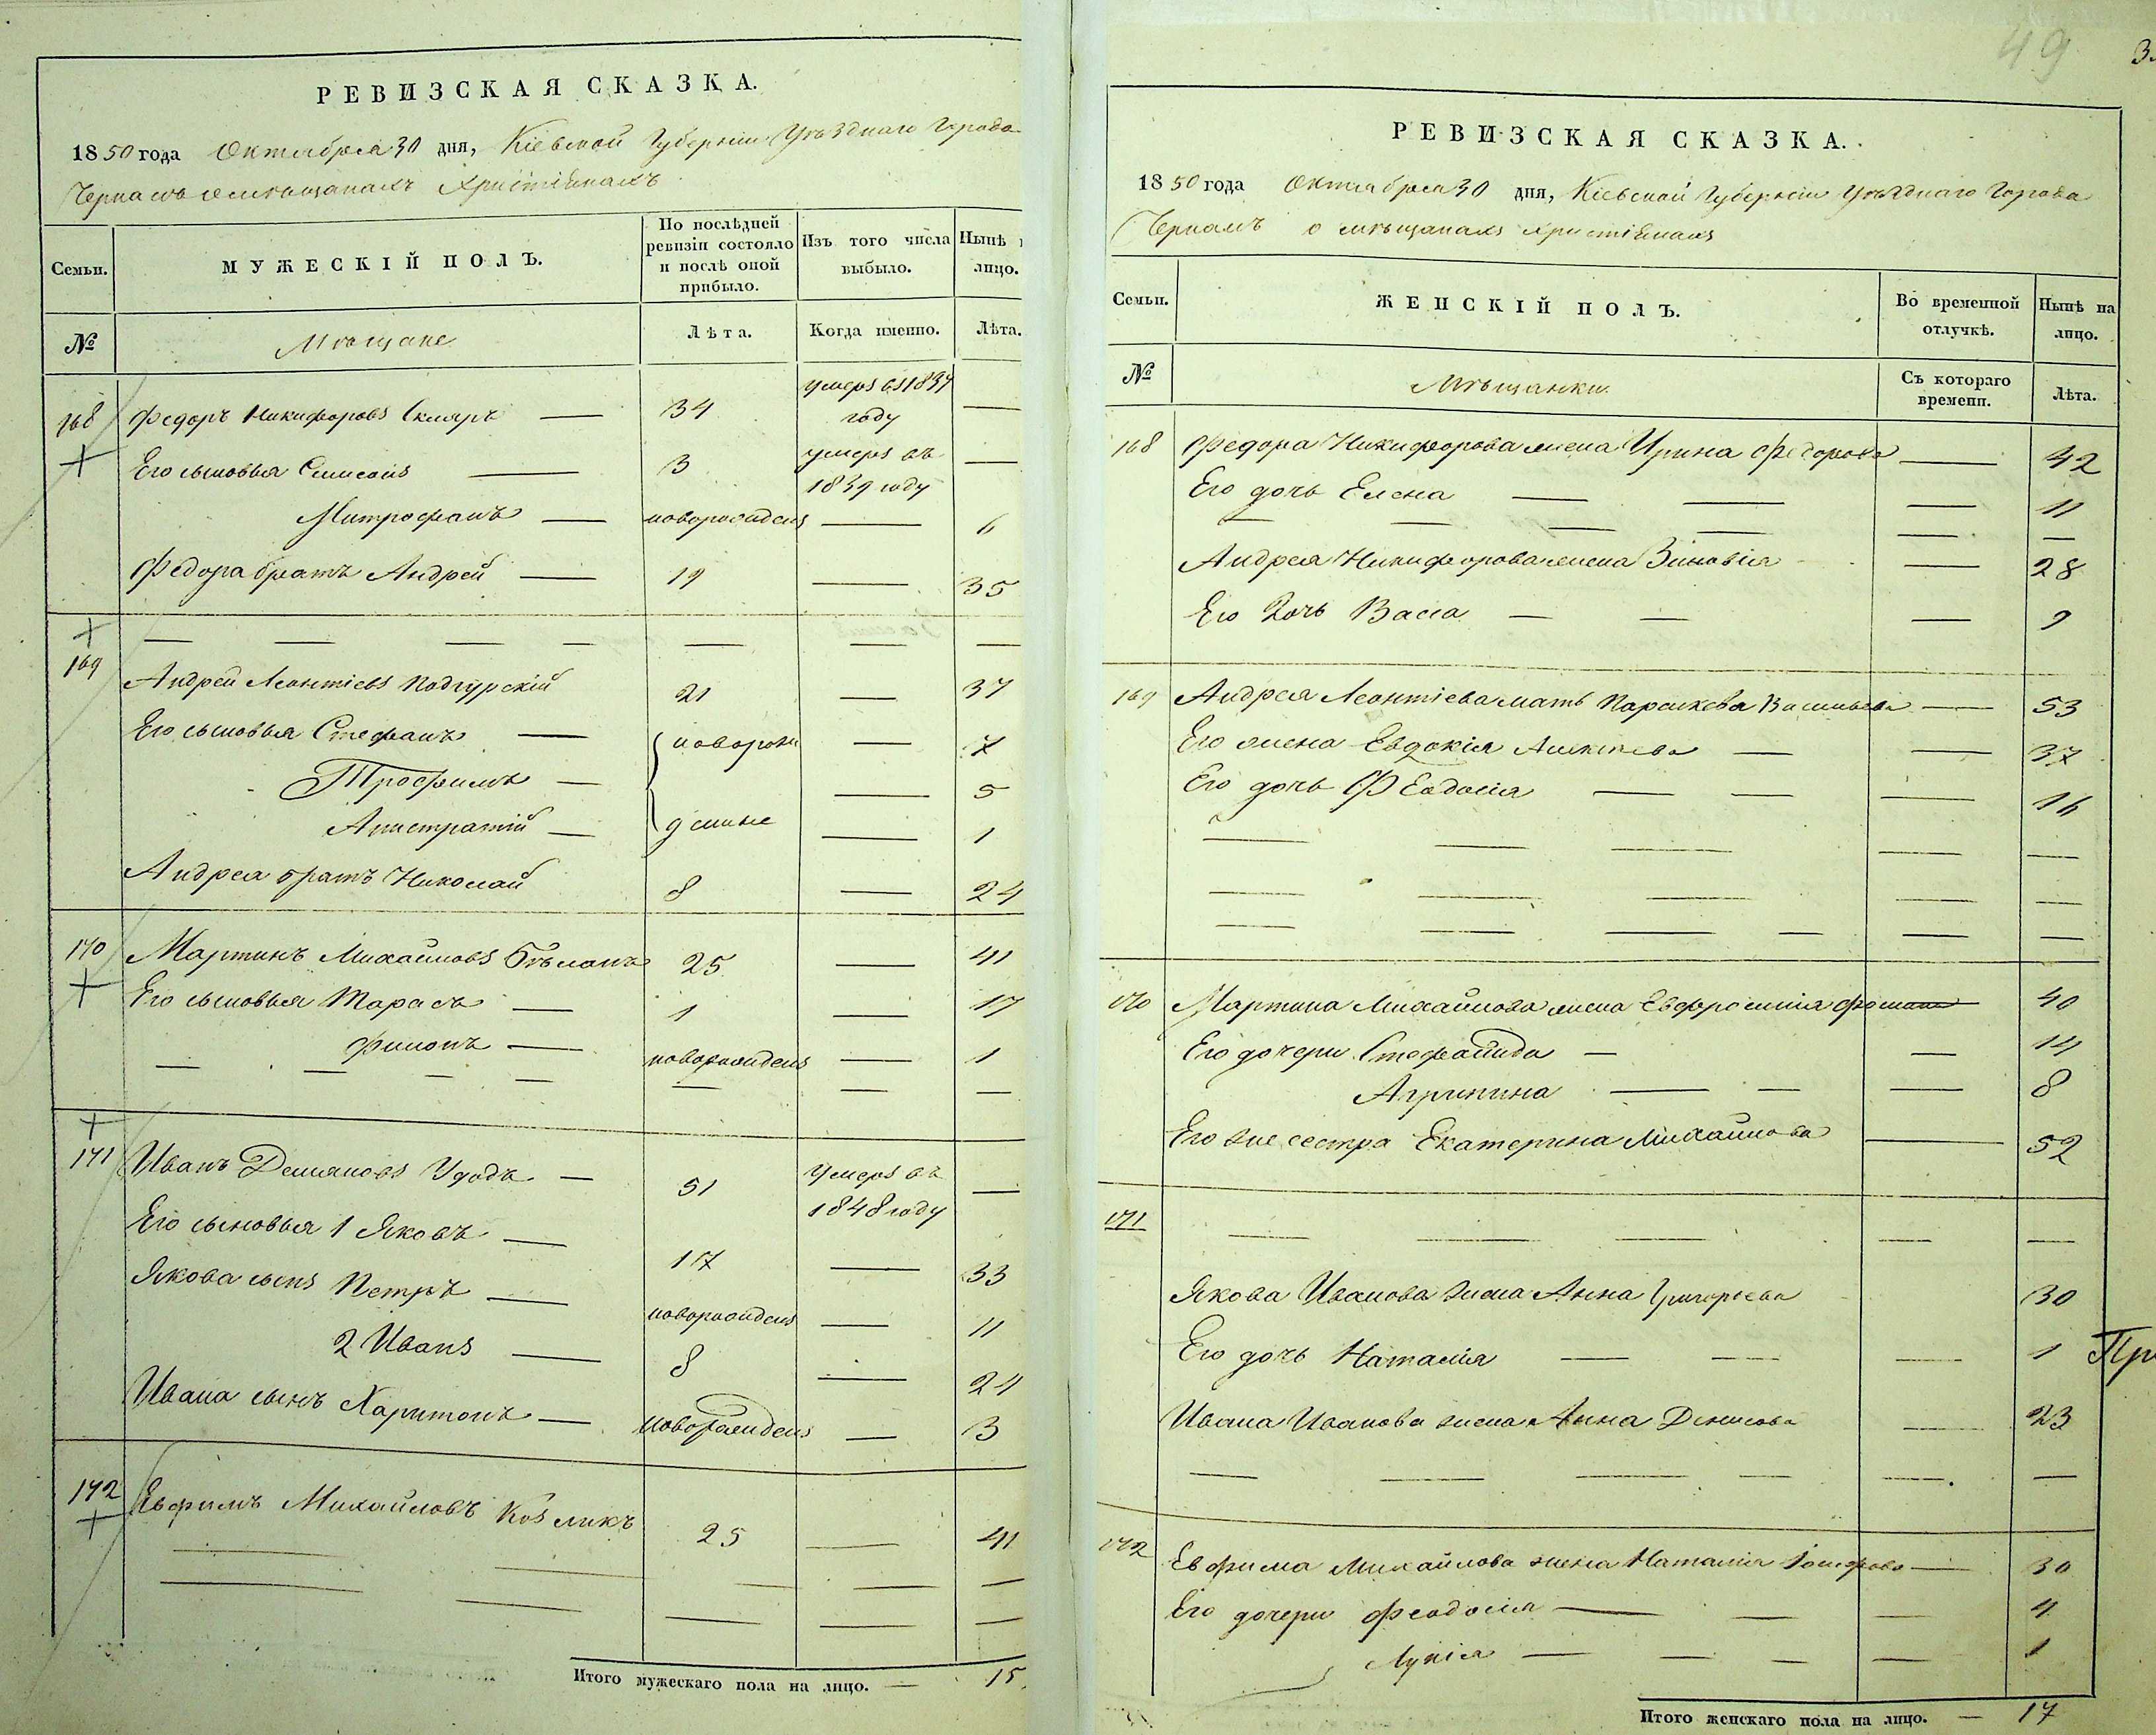 РЕВИЗСКАЯ СКАЗКА.
1850 года Октября 30 дня, Кіевской Губерніи Уѣзднаго Города
Черкасъ о мѣщанахъ Христіянахъ
Семьи.
МУЖЕСКІЙ ПОЛЪ.
По послѣдней ревизіи состояло и послѣ оной прибыло.
Изъ того числа выбыло.
Нынѣ
лицо.
№
Мѣщане
Лѣта.
Когда именно.
Лѣта.
168 Федоръ Никифоровъ Скляръ — 34 умеръ въ 1837 году —
Его сыновья Симеонъ — 3 умеръ въ 1839 году —
Митрофанъ — новорожденъ — 6
Федора братъ Андрей — 19 — 35
169 Андрей Леонтіевъ Подгурскій 21 — 37
Его сыновья Стефанъ — новорож — 7
Трофимъ — — 5
Анистратій — денные — 1
Андрея братъ Николай 8 — 24
170 Мартинъ Михайловъ Бѣланъ 25 — 41
Его сыновья Тарасъ — 1 — 17
Филонъ — новорожденъ — 1
171 Иванъ Демяновъ Удодъ — 51 Умеръ въ 1848 году —
Его сыновья 1 Яковъ — 17 — 33
Якова сынъ Петръ — новорожденъ — 11
2 Иванъ — 8 — 24
Ивана сынъ Харитонъ — новорожденъ — 3
172 Евфимъ Михайловъ Козликъ 25 — 41
Итого мужескаго пола на лицо. — 15
49
3
РЕВИЗСКАЯ СКАЗКА.
1850 года Октября 30 дня, Кіевской Губерніи Уѣзднаго Города
Черкасъ о мѣщанахъ христіянахъ
Семьи.
ЖЕНСКІЙ ПОЛЪ.
Во временной отлучкѣ.
Нынѣ на лицо.
№
Мѣщанки.
Съ котораго времени.
Лѣта.
168 Федора Никифорова жена Ирина Федорова — 42
Его дочь Елена — — — 11
Андрея Никифорова жена Зиновія — 28
Его дочь Васса — — — 9
169 Андрея Леонтіева мать Параскева Васильева — 53
Его жена Евдокія Алексѣева — — 37
Его дочь Феодосія — — — 16
170 Мартина Михайлова жена Евфросинія 40
Его дочери Стефанида — — 14
Агрипина — — — 8
Его же сестра Екатерина Михайлова — 52
171
Якова Иванова жена Анна Григорьева 30
Его дочь Наталія — — — 1
Пр
Ивана Иванова жена Анна Денисова — 23
172 Евфима Михайлова жена Наталія Іосифова — 30
Его дочери Феодосія — — — 4
Лукія — — — — 1
Итого женскаго пола на лицо. — 17